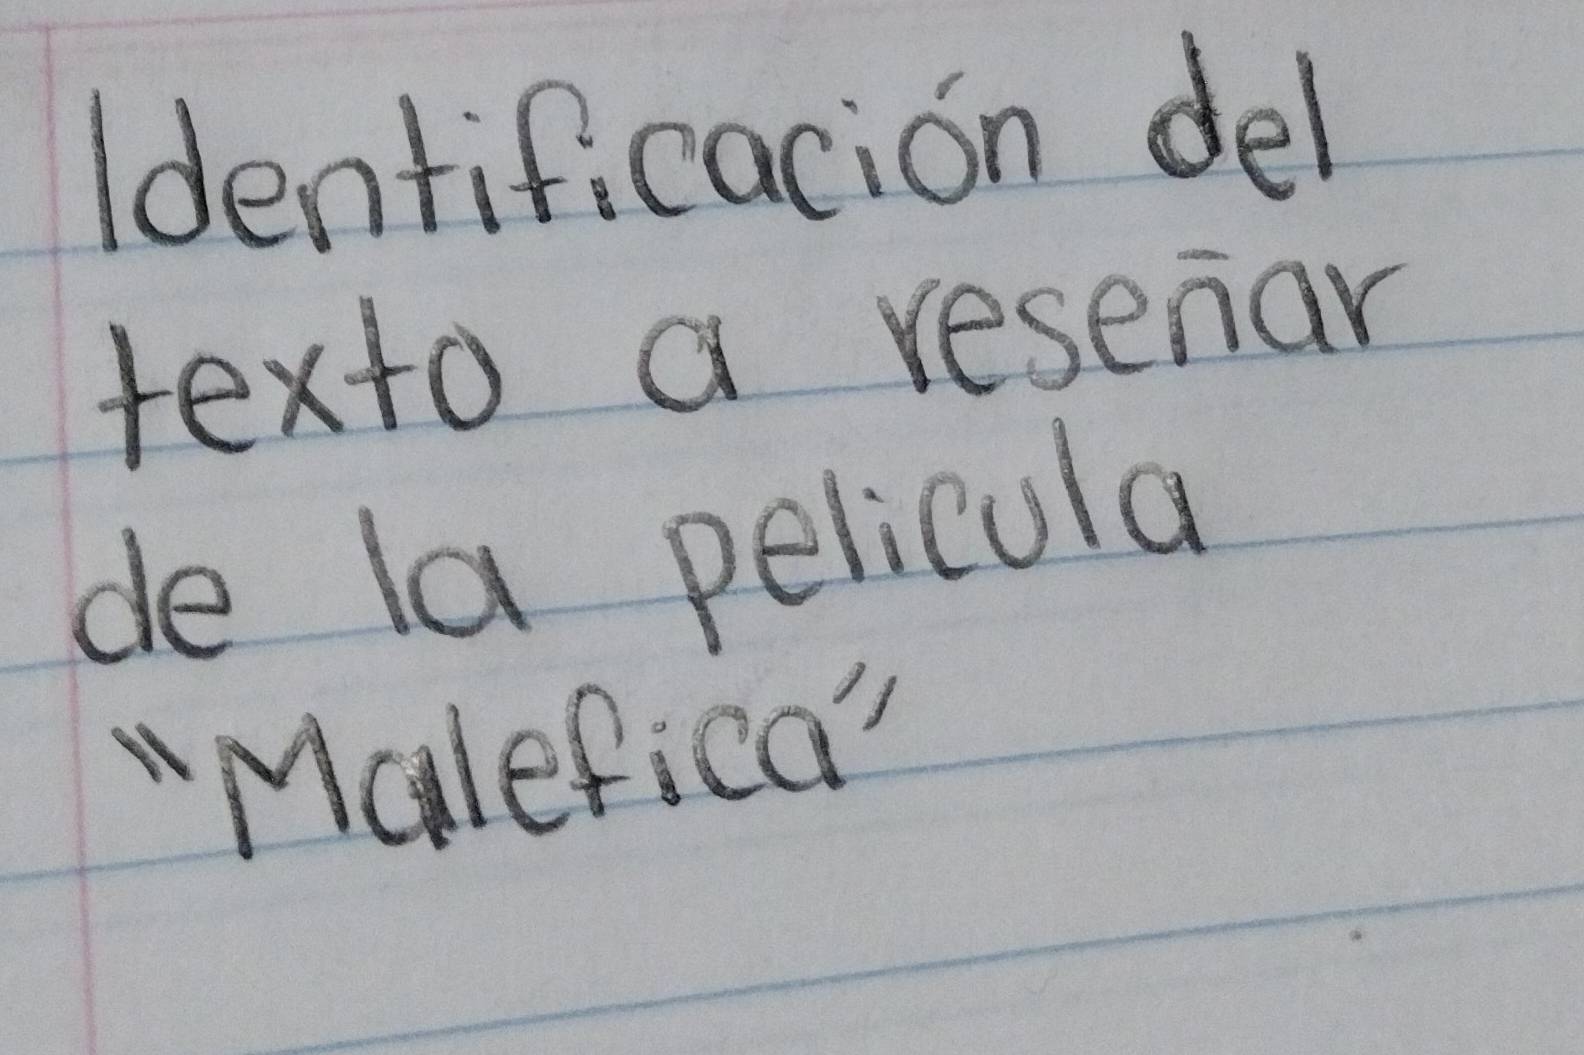 Identificación del
texto a reseñar
de la pelicula
"Malefica"